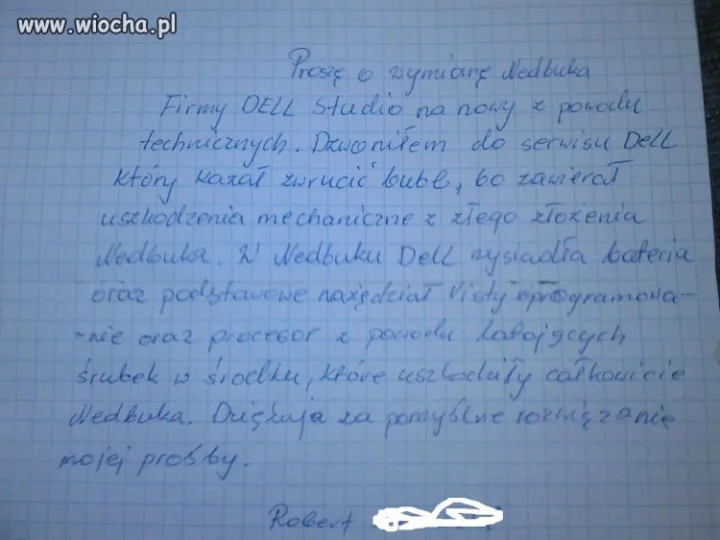 www.wiocha.pl
Proszę o wymianę Nedbuka
Firmy DELL Studio na nowy z powodu
technicznych. Dzwoniłem do serwisu Dell
który kazał zwrucić bubl, bo zawierał
uszkodzenia mechaniczne z złego złożenia
Nedbuka. W Nedbuku Dell wysiadła bateria
oraz podstawowe Visty oprogramowa-
-nie oraz procesor z powodu latających
śrubek w środku, które uszkodziły całkowicie
Nedbuka. Dziękuja za pomyślne rozwiązanie
mojej prośby.
Robert